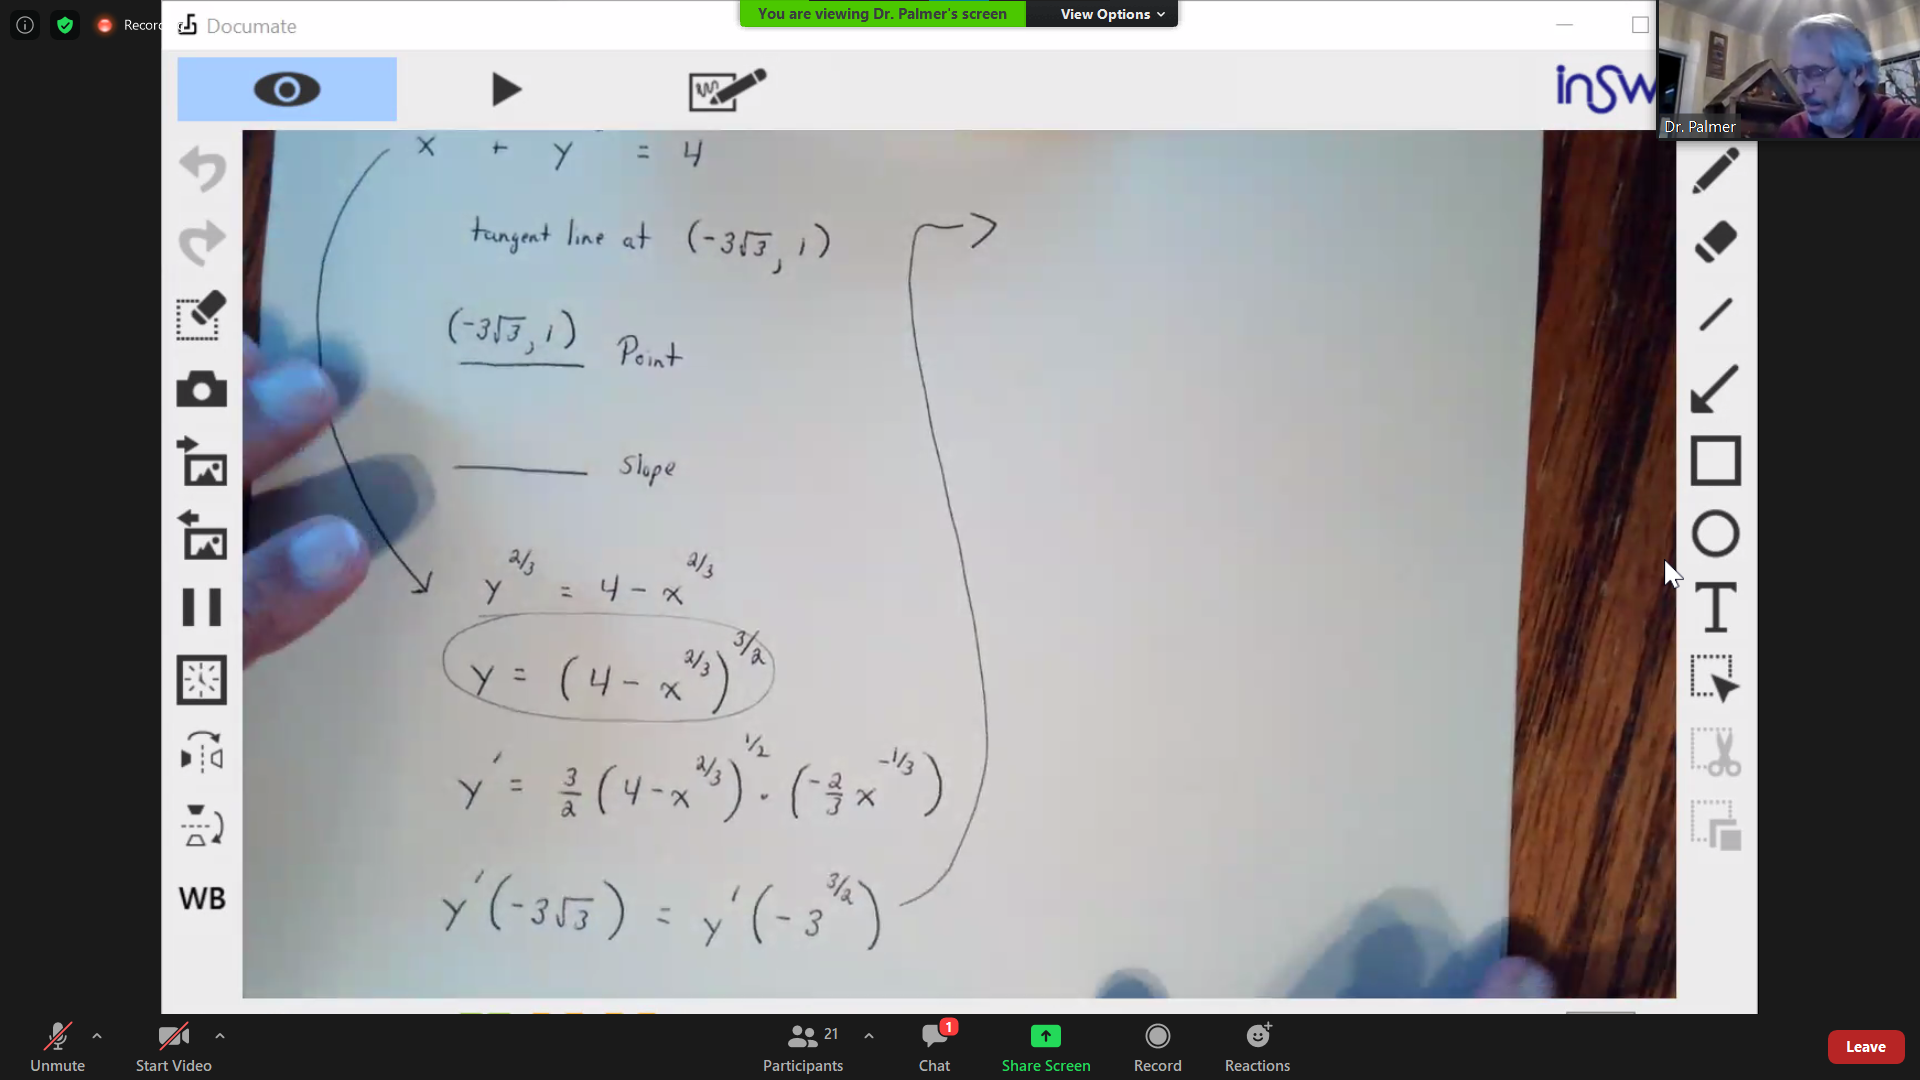 You are viewing Dr. Palmer's screen View Options
Documate
inSw
Dr. Palmer
x + y = 4
tangent line at (-3√3, 1)
(-3√3, 1) Point
slope
y^{2/3} = 4 - x^{2/3}
y = (4 - x^{2/3})^{3/2}
y' = 3/2 (4 - x^{2/3})^{1/2} · (-2/3 x^{-1/3})
y'(-3√3) = y'(-3^{3/2})
T
WB
21
1
Unmute Start Video Participants Chat Share Screen Record Reactions Leave